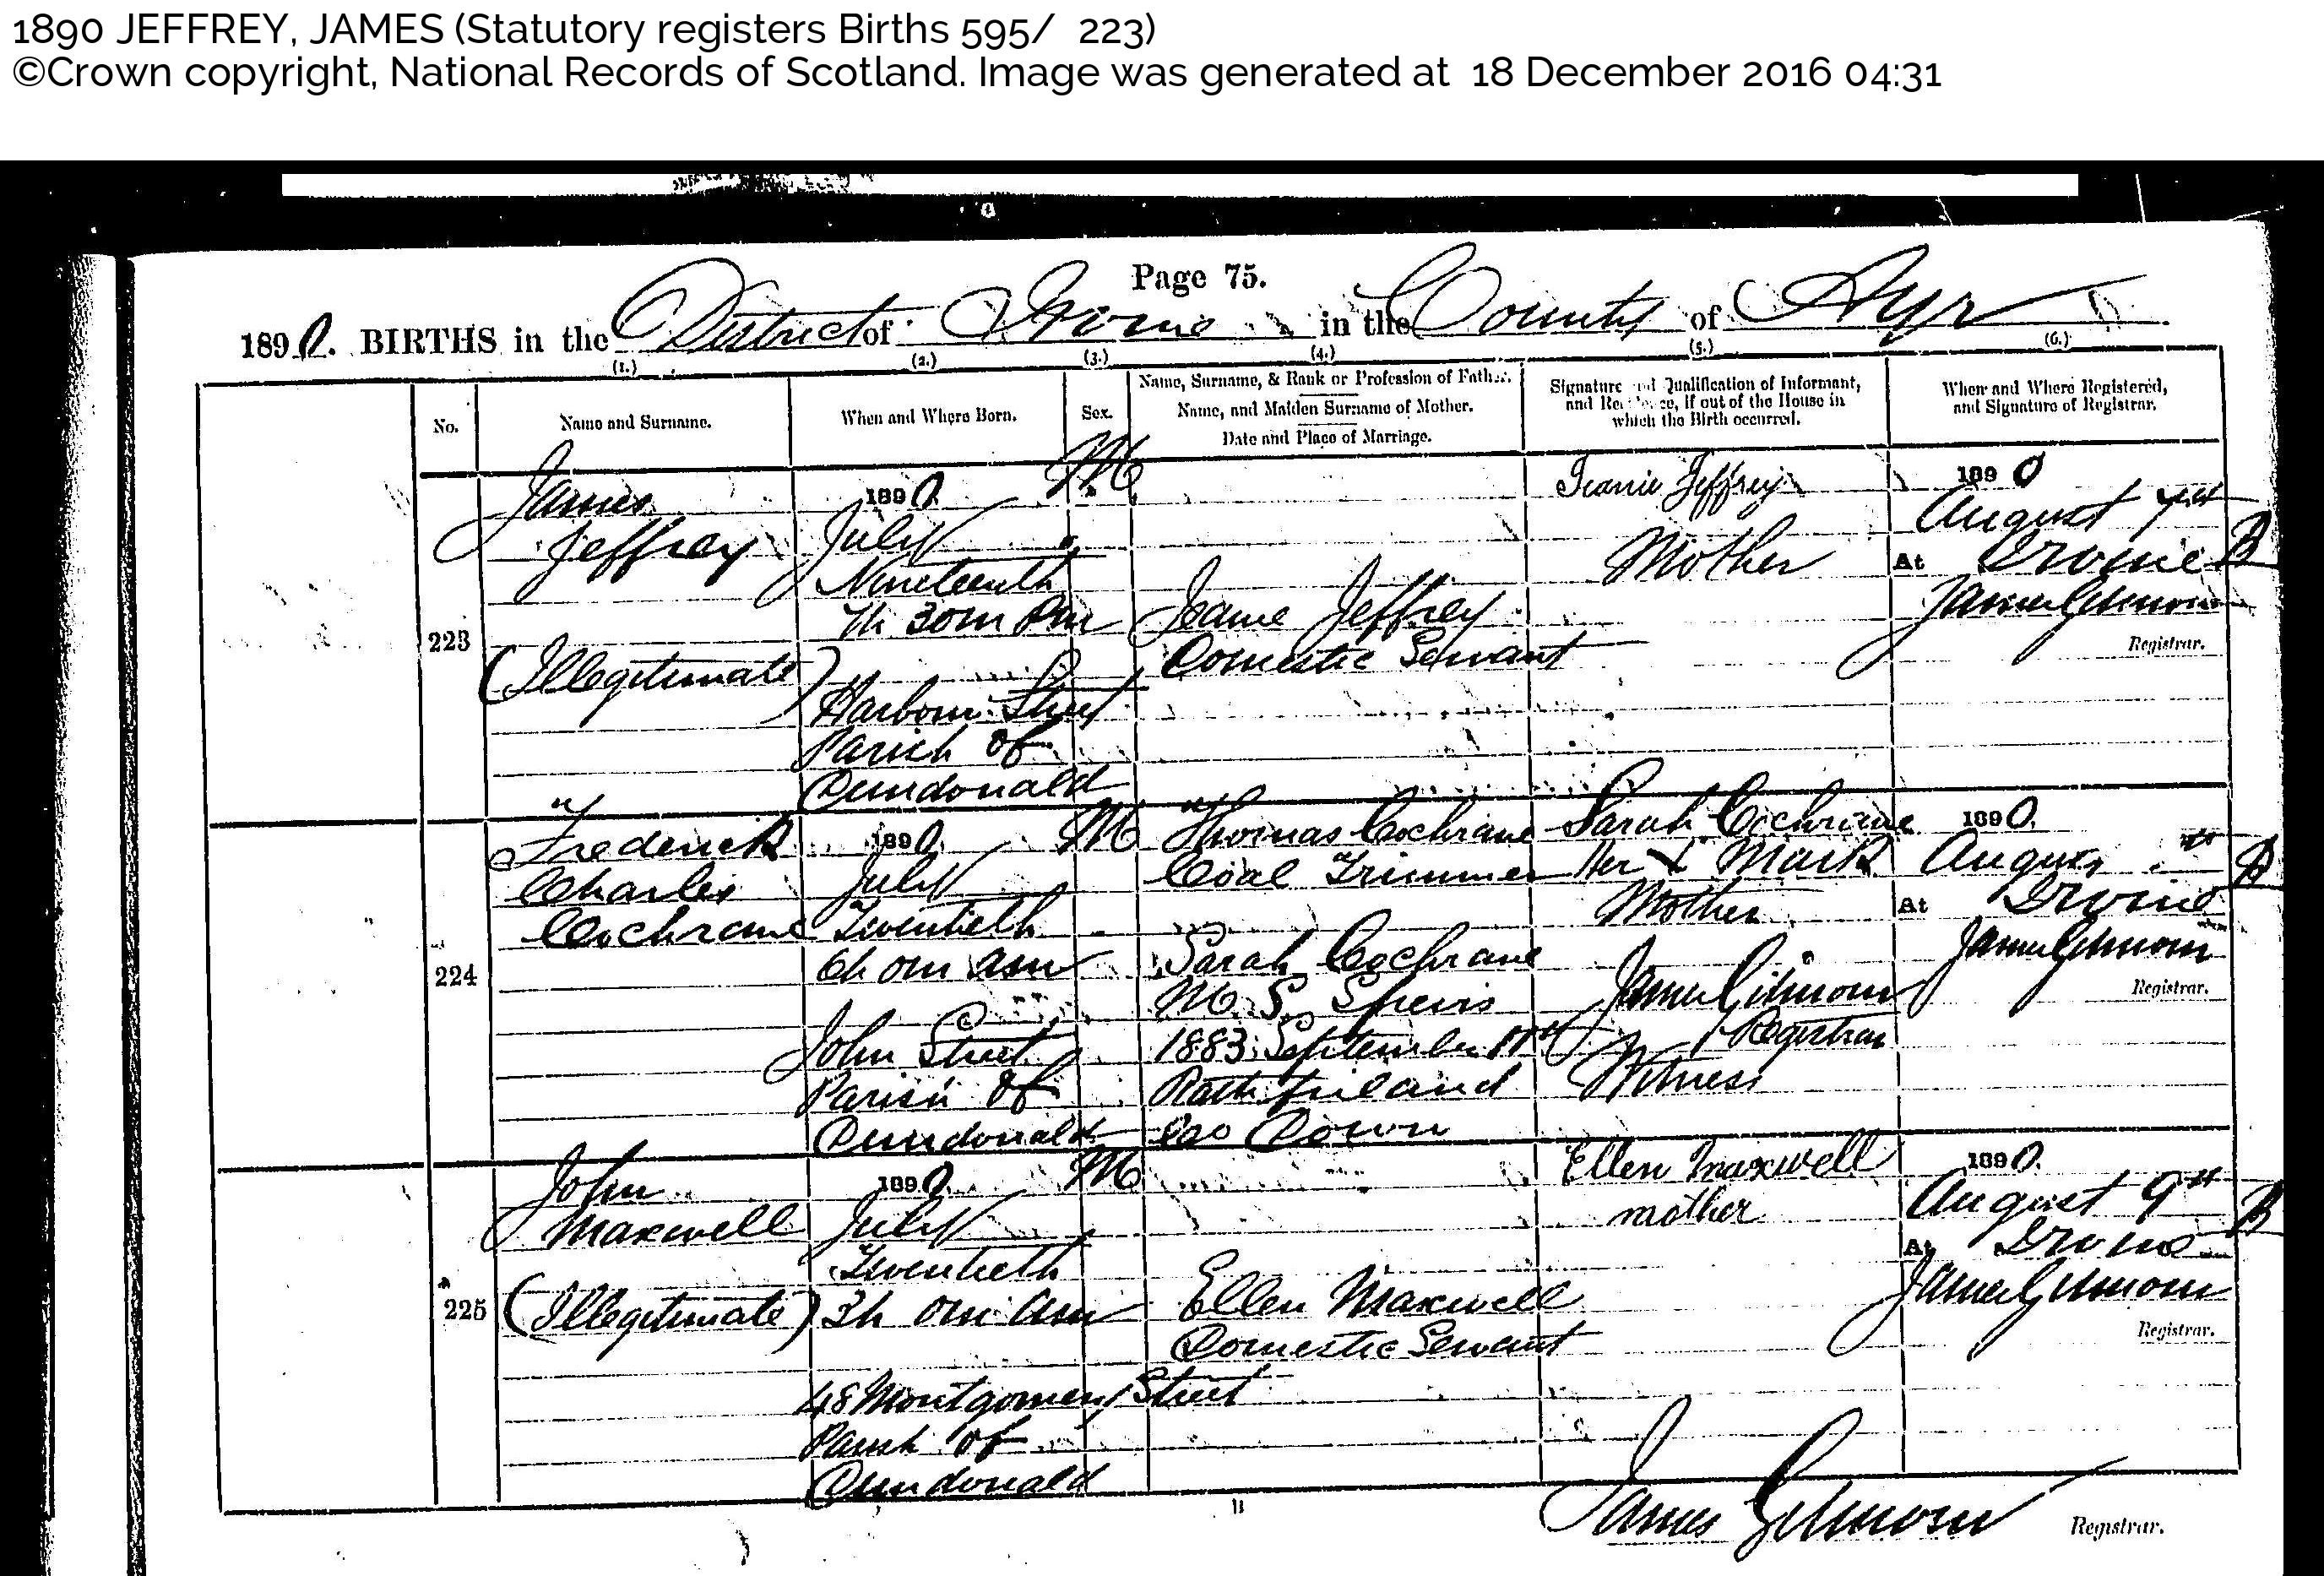 1890 JEFFREY, JAMES (Statutory registers Births 595/ 223)
©Crown copyright, National Records of Scotland. Image was generated at 18 December 2016 04:31
Page 75.
1890. BIRTHS in the District of Irvine in the County of Ayr
(1.) (2.) (3.) (4.) (5.) (6.)
No.
Name and Surname.
When and Where Born.
Sex.
Name, Surname, & Rank or Profession of Father.
Name, and Maiden Surname of Mother.
Date and Place of Marriage.
Signature and Qualification of Informant,
and Residence, if out of the House in
which the Birth occurred.
When and Where Registered,
and Signature of Registrar.
223
James
Jeffrey
(Illegitimate)
1890
July
Nineteenth
7h 30m PM
Harbour Street
Parish of
Dundonald
M
Jeanie Jeffrey
Domestic Servant
Jeanie Jeffrey
Mother
1890
August 7th
At Irvine
James Gilmour
Registrar.
224
Frederick
Charles
Cochrane
1890
July
Twentieth
6h 0m AM
John Street
Parish of
Dundonald
M
Thomas Cochrane
Coal Trimmer
Sarah Cochrane
M.S. Speirs
1883 September 11th
Rathfriland
Co Down
Sarah Cochrane
Her X Mark
Mother
James Gilmour
Registrar
Witness
1890
August
At Irvine
James Gilmour
Registrar.
225
John
Maxwell
(Illegitimate)
1890
July
Twentieth
3h 0m AM
48 Montgomery Street
Parish of
Dundonald
M
Ellen Maxwell
Domestic Servant
Ellen Maxwell
mother
1890
August 9th
At Irvine
James Gilmour
Registrar.
B
James Gilmour
Registrar.